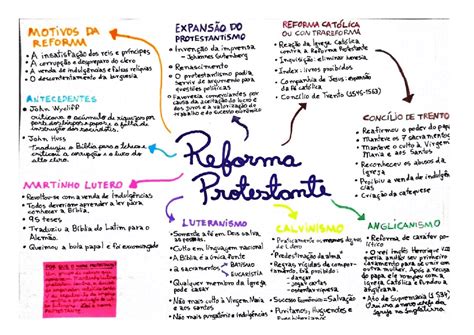 MOTIVOS DA
REFORMA
A insatisfação dos reis e príncipes
A corrupção e despreparo do clero
A venda de indulgências e falsas relíquias
O descontentamento da burguesia
ANTECEDENTES
John Wycliff
criticava o acúmulo de riquezas por
parte dos bispos e papas e a falta de
instrução dos sacerdotes.
John Huss
Traduziu a Bíblia para o tcheco e
criticou a corrupção e o luxo do
alto clero
MARTINHO LUTERO
Revoltou-se com a venda de indulgências
Todos deveriam aprender a ler para
conhecer a Bíblia.
95 teses
Traduziu a Bíblia do Latim para o
Alemão.
Queimou a bula papal e foi excomungado
EXPANSÃO DO
PROTESTANTISMO
Invenção da imprensa
- Johannes Gutemberg
Renascimento
O protestantismo podia
servir de argumento para
questões políticas
Favorecia comerciantes por
causa da aceitação do lucro e
dos juros e a valorização do
trabalho e do sucesso econômico
REFORMA CATÓLICA
OU CONTRARREFORMA
Reação da Igreja Católica
contra a Reforma Protestante
Inquisição: eliminar heresia
Index: livros proibidos
Companhia de Jesus: expansão
da Fé católica
Concílio de Trento (1545-1563)
CONCÍLIO DE TRENTO
Reafirmou o poder do papa
Manteve os 7 sacramentos
Manteve o culto à Virgem
Maria e aos Santos
Reconheceu os abusos da
Igreja
Proibiu a venda de indulgências
Criação do catequese
Reforma
Protestante
LUTERANISMO
Somente a fé em Deus salva
Culto em linguagem nacional
A Bíblia é a única fonte
2 sacramentos
BATISMO
EUCARISTIA
Qualquer membro da Igreja
pode casar
Não mais culto à Virgem Maria
e aos santos
Não mais purgatório e indulgências
CALVINISMO
Praticamente as mesmas ideias
de Lutero
"Predestinação da alma"
Regras rígidas de comportamento
- dançar
- jogar
Sucesso Econômico = Salvação
Puritanos; Huguenotes e
ANGLICANISMO
Reforma de caráter político
O rei inglês Henrique VIII
queria anular seu primeiro
casamento para se unir com
outra mulher. Após a recusa
do papa ele rompe com a
Igreja, confisca as terras da
Igreja Católica.
Ato de Supremacia (1534)